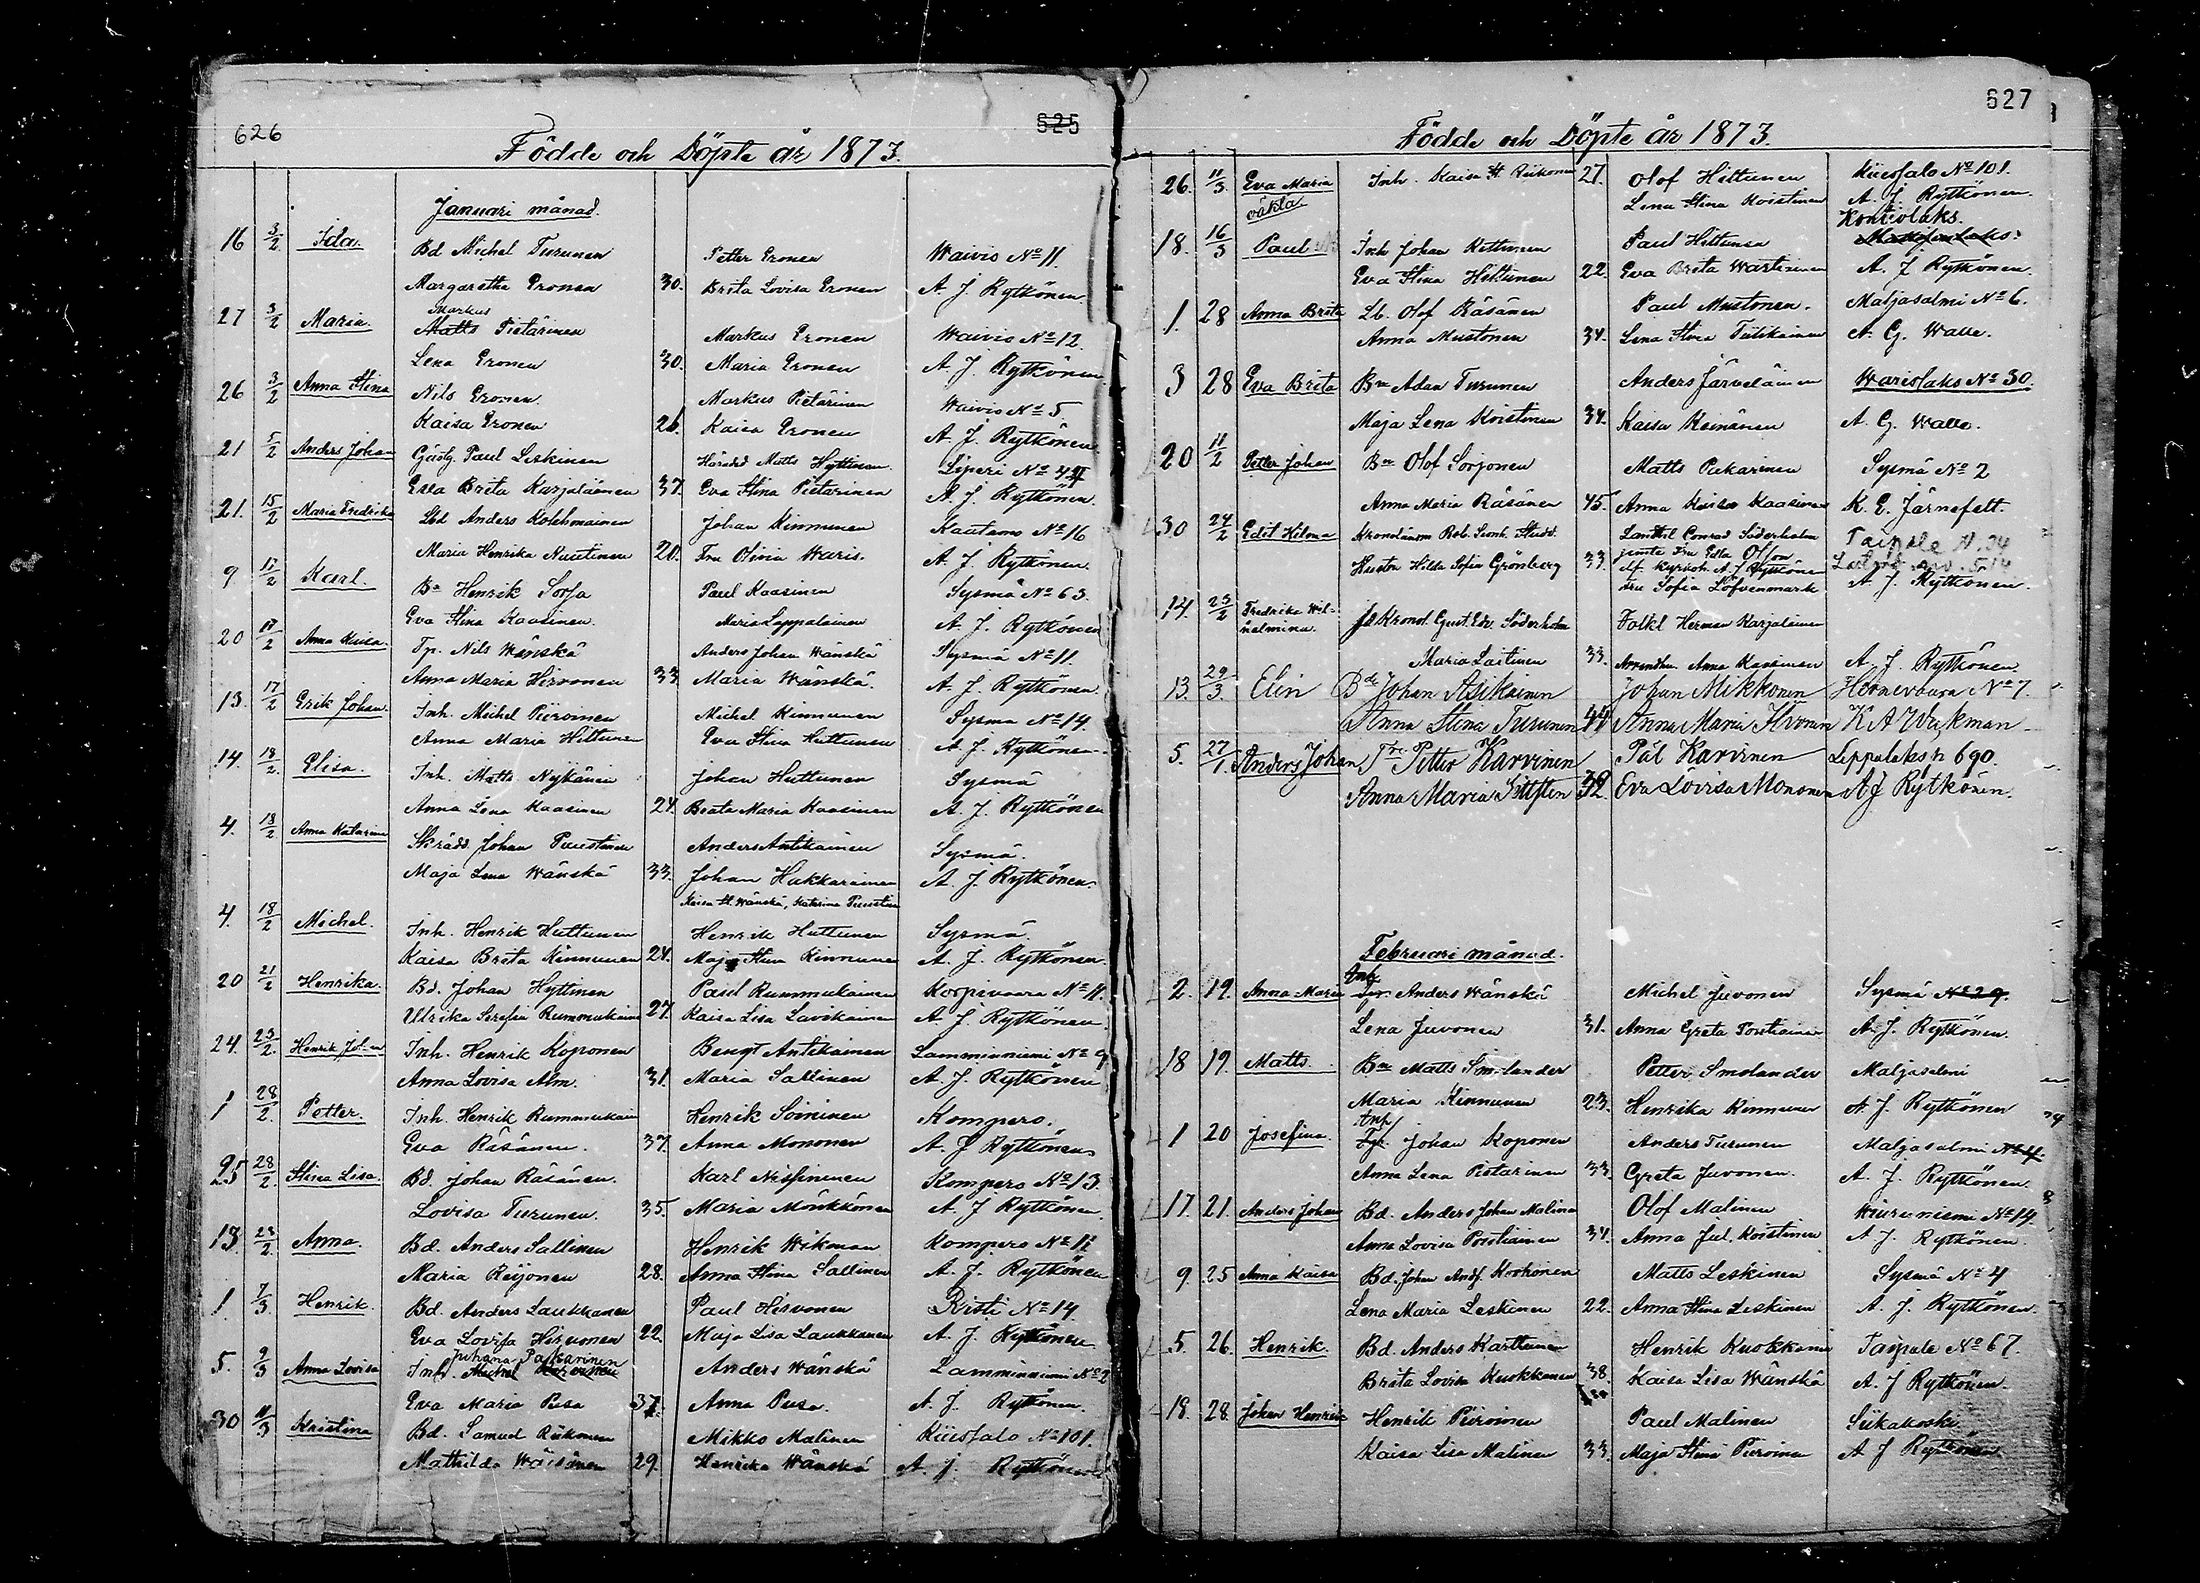 626
625
Födde och Döpte år 1873.
Januari månad.
16 3/2 Ida. Bd Michel Turunen Petter Eronen Waivio No 11.
Margaretha Eronen 30. Brita Lovisa Eronen A. J. Rytkönen
Markus
27 3/2 Maria. Matts Pietarinen Markus Eronen Waivio No 12.
Lena Eronen 30. Maria Eronen A. J. Rytkönen
26 3/2 Anna Stina Nils Eronen. Markus Pietarinen Waivio No 5.
Kaisa Eronen 26. Kaisa Eronen A. J. Rytkönen
21 5/2 Anders Johan Gästg. Paul Leskinen Häradsd Matts Hyttinen. Liperi No 4
Eva Brita Karjalainen 37. Eva Stina Pietarinen A. J. Rytkönen.
21. 15/2 Maria Fredrika Sld Anders Kolehmainen Johan Kinnunen Kaatamo No 16
Maria Henrika Nuutinen 20. Fru Olivia Waris. A. J. Rytkönen.
9 17/2 Karl. Bn Henrik Sorsa Paul Kaasinen Sysmä No 63.
Eva Stina Kaasinen. Maria Lappalainen A. J. Rytkönen
20 17/2 Anna Kaisa Tp. Nils Wänskä Anders Johan Wänskä Sysmä No 11.
Anna Maria Hirvonen 33 Maria Wänskä. A. J. Rytkönen.
13. 17/2 Erik Johan. Inh. Michel Piiroinen Michel Kinnunen Sysmä No 14.
Anna Maria Hiltunen Eva Stina Huttunen A. J. Rytkönen.
14. 18/2 Elisa. Inh. Matts Nykänen Johan Huttunen Sysmä
Anna Lena Kaasinen 24. Beata Maria Kaasinen A. J. Rytkönen
4. 18/2 Anna Katarina Skrädd. Johan Puustinen Anders Antikainen Sysmä.
Maja Lena Wänskä 33. Johan Hakkarainen A. J. Rytkönen.
Kaisa St. Wänskä, Katarina Puustinen
4. 18/2 Michel. Inh. Henrik Huttunen Henrik Huttunen Sysmä.
Kaisa Brita Kinnunen 24. Maja Stina Kinnunen A. J. Rytkönen.
20 21/2 Henrika. Bd. Johan Hyttinen Paul Rummukainen Korpivaara No 11.
Ulrika Serafia Rummukainen 27. Kaisa Lisa Lavikainen A. J. Rytkönen.
24. 23/2. Henrik Johan Inh. Henrik Koponen Bengt Antikainen Lamminniemi No 9
Anna Lovisa Alm. 31. Maria Sallinen A. J. Rytkönen
1 28/2. Petter. Inh. Henrik Rummukainen Henrik Soininen Kompero.
Eva Räsänen. 37. Anna Mononen A. J Rytkönen
25 28/2. Stina Lisa. Bd. Johan Räsänen. Karl Nissininen Kompero No 13.
Lovisa Turunen. 35. Maria Mönkkönen A. J Rytkönen.
13. 23/2 Anna. Bd. Anders Sallinen Henrik Wikman Kompero No 11
Maria Reijonen 28. Anna Stina Sallinen A. J. Rytkönen
1 7/3 Henrik. Bd. Anders Laukkanen Paul Hirvonen Risti No 14
Eva Lovisa Hirvonen 22. Maja Lisa Laukkanen A. J. Rytkönen
Juhana Pakarinen
5. 9/3 Anna Lovisa Inh. Michel Anders Wänskä Lamminniemi No 2
Eva Maria Pusa 37. Anna Pusa. A. J. Rytkönen.
30 11/3 Kristina Bd. Samuel Riikonen Mikko Malinen Kiiesfalo No 101.
Mathilda Wäisänen 29. Henrika Wänskä A. J. Rytkönen
627
Födde och Döpte år 1873.
26. 11/3. Eva Maria Inh. Kaisa St. Riikonen 27. Olof Hiltunen Kiiesfalo No 101.
oäkta Lena Stina Koistinen A. J. Rytkönen.
Kontiolaks.
18. 16/3 Paul Inh Johan Kettunen Paul Hiltunen
Eva Stina Hiltunen 22. Eva Brita Wartiainen A. J Rytkönen.
1. 28 Anna Brita Lb. Olof Räsänen Paul Mustonen. Maljasalmi No 6.
Anna Mustonen 34. Lena Stina Tiilikainen A. G. Walle.
3 28 Eva Brita Bn Adam Turunen Anders Järveläinen Wariolaks No 30.
Maja Lena Koistinen 34. Kaisa Keinänen A. G. Walle.
20 11/2 Petter Johan Bn Olof Sorjonen Matts Pakarinen Sysmä No 2
Anna Maria Räsänen 45. Anna Kaisa Kaasinen K. E. Järnefelt.
30 24/2 Edit Hilma Kronolänsm Rob. Landtl Conrad Söderholm Taipale N. 34
jemte Fru Edla
Hustru Hilda Sofia Grönberg 33. A. J Rytkönen
Fru Sofia Löfvenmark A. J. Rytkönen.
14. 23/2 Fredrika Wil-
helmina. Kronol. Gust. Edv. Söderholm Folkl Herman Karjalainen
Maria Laitinen 33. Anna Kaasinen A. J. Rytkönen
13. 29/3. Elin Bde Johan Asikainen Johan Mikkonen Hernevaara No 7.
Anna Stina Turunen 44 Anna Maria Hirvonen K A Wickman
5. 27/1. Anders Johan Petter Karvinen Pål Karvinen Leppälaks n 690.
Anna Maria 32. Eva Lovisa Mononen A J Rytkönen.
Februari månad.
Inh
2. 19. Anna Maria Anders Wänskä Michel Juvonen Sysmä No 29.
Lena Juvonen 31. Anna Greta Porttiainen A. J. Rytkönen.
18 19. Matts. Bn Matts Smolander Petter Smolander Maljasalmi
Maria Kinnunen 23. Henrika Kinnunen A. J. Rytkönen
Inh
1 20 Josefina. Johan Koponen Anders Turunen Maljasalmi No 4.
Anna Lena Pietarinen 33. Greta Juvonen. A. J. Rytkönen.
17. 21. Anders Johan Bd. Anders Johan Malinen Olof Malinen Wiiruniemi No 14.
Anna Lovisa Porttiainen 34. Anna Jul. Koistinen A J. Rytkönen.
9. 25 Anna Kaisa Bd. Johan Andr. Korhonen Matts Leskinen Sysmä No 4
Lena Maria Leskinen 22. Anna Stina Leskinen A. J. Rytkönen.
5. 26. Henrik. Bd. Anders Karttunen Henrik Kuokkanen Taipale No 67.
Brita Lovisa Kuokkanen 38. Kaisa Lisa Wänskä A. J Rytkönen.
18. 28. Johan Henrik Henrik Piiroinen Paul Malinen Siikakoski.
Kaisa Lisa Malinen 33. Maja Stina Piiroinen A J Rytkönen